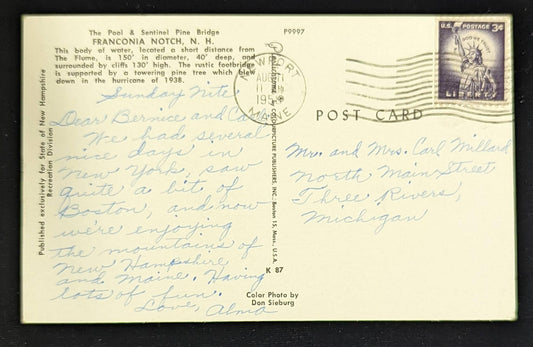 The Pool & Sentinel Pine Bridge
FRANCONIA NOTCH, N. H.
This body of water, located a short distance from
The Flume, is 150' in diameter, 40' deep, and
surrounded by cliffs 130' high. The rustic footbridge
is supported by a towering pine tree which blew
down in the hurricane of 1938.
P9997
Published exclusively for State of New Hampshire
Recreation Division
Sunday Nite.
Dear Bernice and Carl
We had several
nice days in
New York, saw
quite a bit of
Boston, and now
we're enjoying
the mountains of
New Hampshire
and Maine. Having
lots of fun.
Love, Alma
Plastichrome by COLOURPICTURE PUBLISHERS, INC., Boston 15, Mass., U.S.A.
K 87
Color Photo by
Don Sieburg
NEWPORT
AUG 11
MAINE
U.S. POSTAGE 3¢
POST CARD
Mr. and Mrs. Carl Millard
North Main Street
Three Rivers,
Michigan